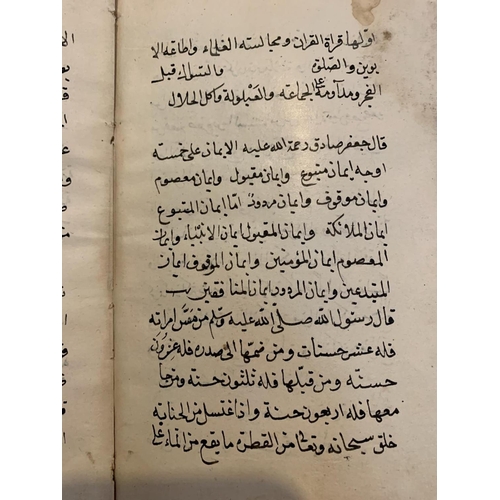 اولها قراة القران ومجالسته العلماء واطاعة الا
بوين والصلوة والتسواك قبل
الفجر ومداومة على الجماعة والقيلولة واكل الحلال
قال جعفر صادق رحمة الله عليه الايمان على خمسته
اوجه ايمان متبوع وايمان مقبول وايمان معصوم
وايمان موقوف وايمان مردود امّا ايمان المتبوع
ايمان الملائكة وايمان المقبول ايمان الانبياء وايمان
المعصوم ايمان المؤمنين وايمان الموقوف ايمان
المبتدعين وايمان المردود ايمان المنافقين
قال رسول الله صلى الله عليه وسلم من مسّ امراته
فله عشر حسنات ومن ضمها الى صدره فله عزون
حسنة ومن قبلها فله ثلثون حسنة ومن جا
معها فله اربعون حسنة واذا اغتسل من الجنابة
خلق سبحانه وتعالى من القطرة ما يقع من الماء على